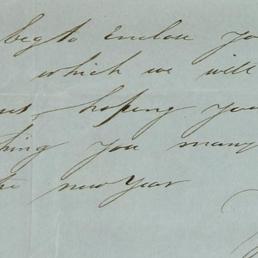 beg to Enclose yo
which we will
hoping you
hing you many
he new year